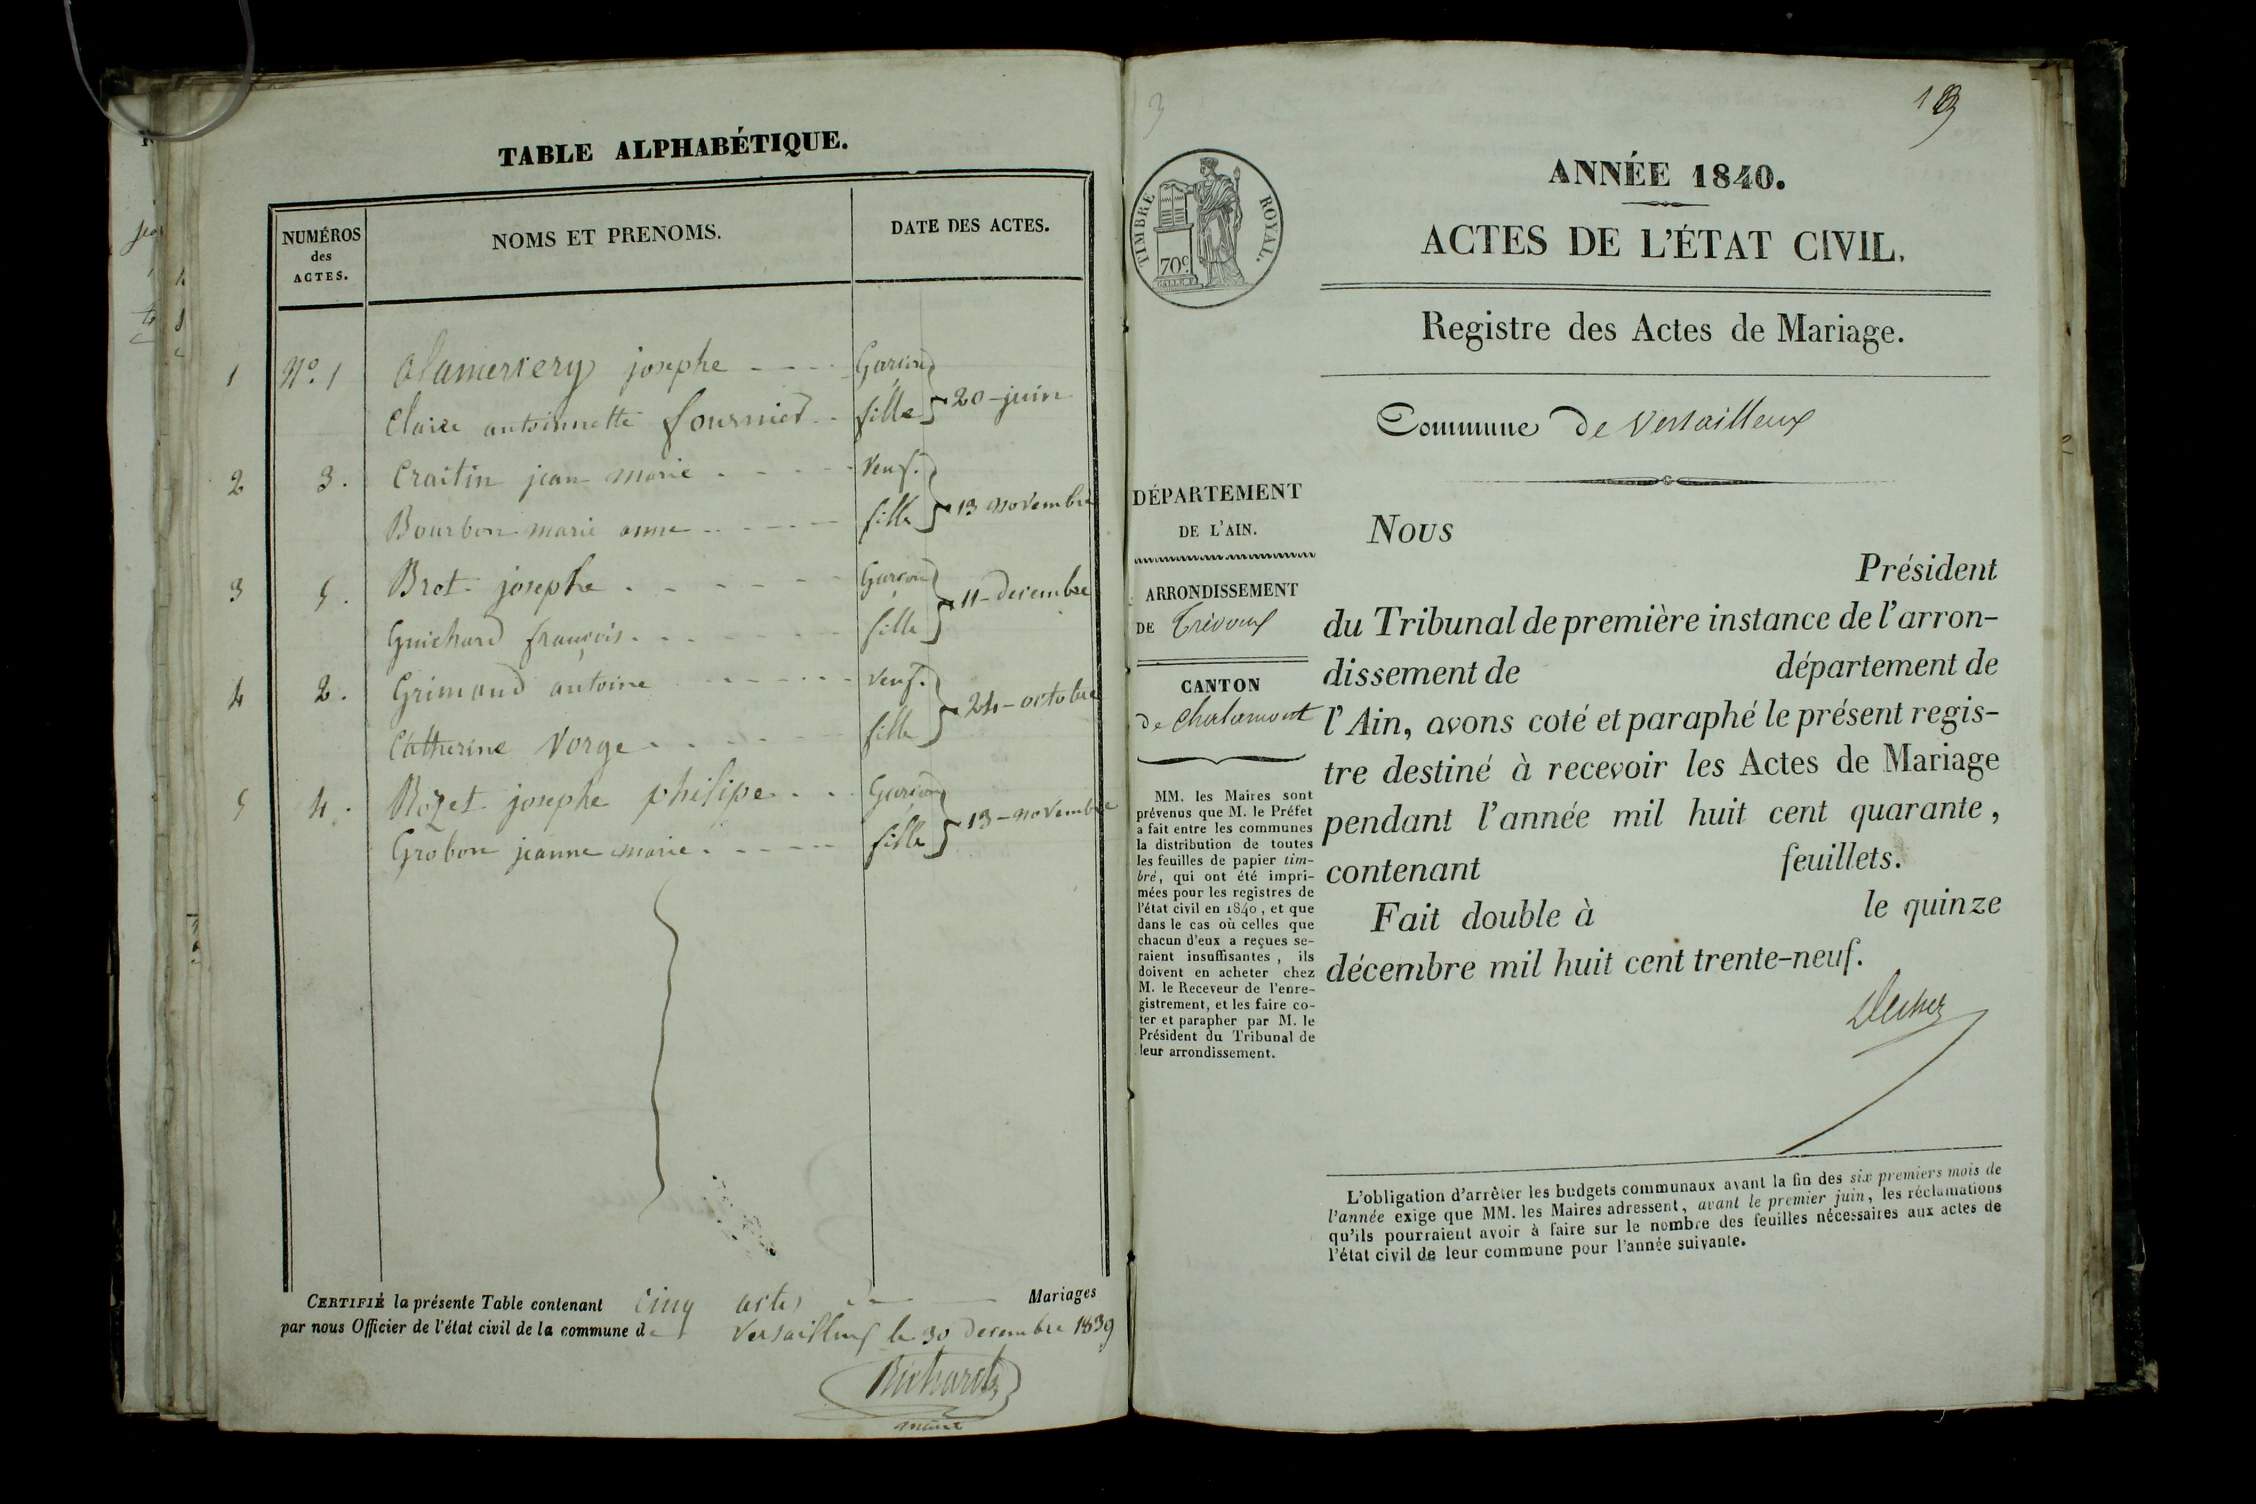 TABLE ALPHABÉTIQUE.
NUMÉROS
des
ACTES.
NOMS ET PRENOMS.
DATE DES ACTES.
1 No. 1 josephe Garcon
Claire antoinnette fournier fille } 20 - juin
2 3. Craitin jean marie Veuf.
Bourbon marie anne fille } 13 novembre
3 5. Brot josephe Garcon
Guichard françois fille } 11 - decembre
4 2. Grimaud antoine veuf.
Catherine Vorge fille } 24 - octobre
5 4. Rozet josephe philipe Garcon
Grobon jeanne marie fille } 13 - novembre
CERTIFIÉ la présente Table contenant cinq actes Mariages
par nous Officier de l'état civil de la commune de versailleux le 30 decembre 1839
Richard
maire
3
ANNÉE 1840.
ACTES DE L'ÉTAT CIVIL.
TIMBRE ROYAL.
70c
Registre des Actes de Mariage.
Commune de versailleux
DÉPARTEMENT
DE L'AIN.
ARRONDISSEMENT
DE Trévoux
CANTON
de Chalamont
MM. les Maires sont
prévenus que M. le Préfet
a fait entre les communes
la distribution de toutes
les feuilles de papier tim-
bré, qui ont été impri-
mées pour les registres de
l'état civil en 1840, et que
dans le cas où celles que
chacun d'eux a reçues se-
raient insuffisantes, ils
doivent en acheter chez
M. le Receveur de l'enre-
gistrement, et les faire co-
ter et parapher par M. le
Président du Tribunal de
leur arrondissement.
Nous
Président
du Tribunal de première instance de l'arron-
dissement de département de
l'Ain, avons coté et paraphé le présent regis-
tre destiné à recevoir les Actes de Mariage
pendant l'année mil huit cent quarante,
contenant feuillets.
Fait double à le quinze
décembre mil huit cent trente-neuf.
L'obligation d'arrêter les budgets communaux avant la fin des six premiers mois de
l'année exige que MM. les Maires adressent, avant le premier juin, les réclamations
qu'ils pourraient avoir à faire sur le nombre des feuilles nécessaires aux actes de
l'état civil de leur commune pour l'année suivante.